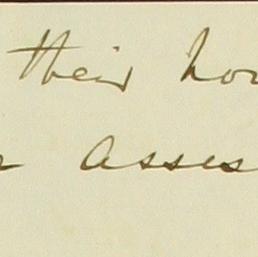 their hou
asses